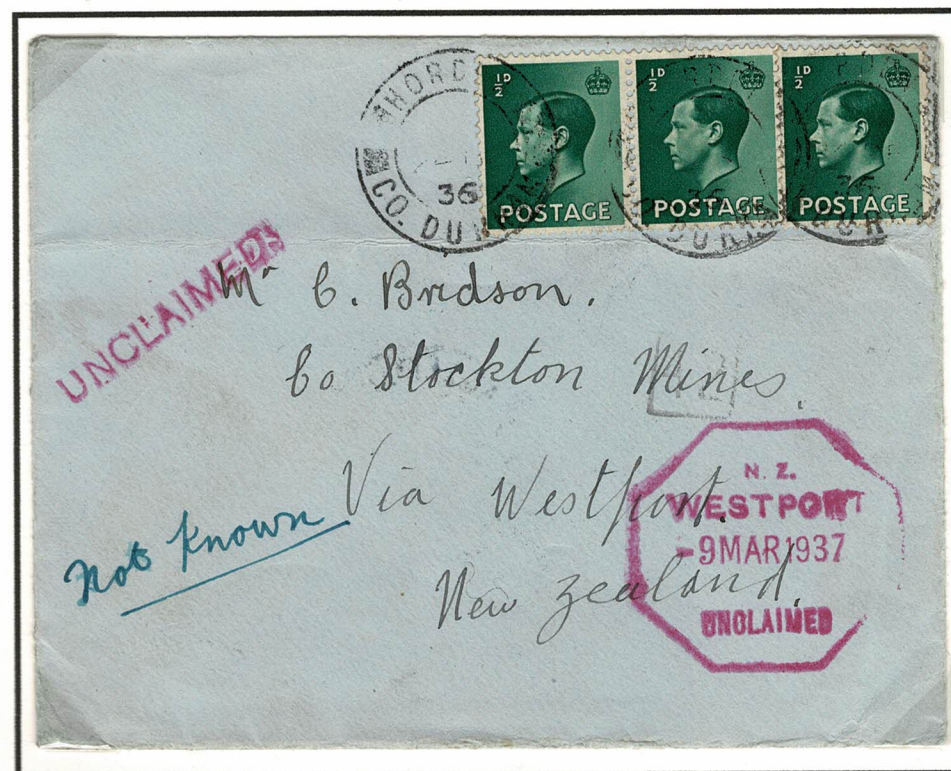 ½D ½D ½D
POSTAGE POSTAGE POSTAGE
36
CO. DU
36
36
UNCLAIMED
Mr C. Bridson.
Co Stockton Mines.
Via Westport.
New Zealand.
Not Known
N. Z.
WESTPORT
-9MAR1937
UNCLAIMED